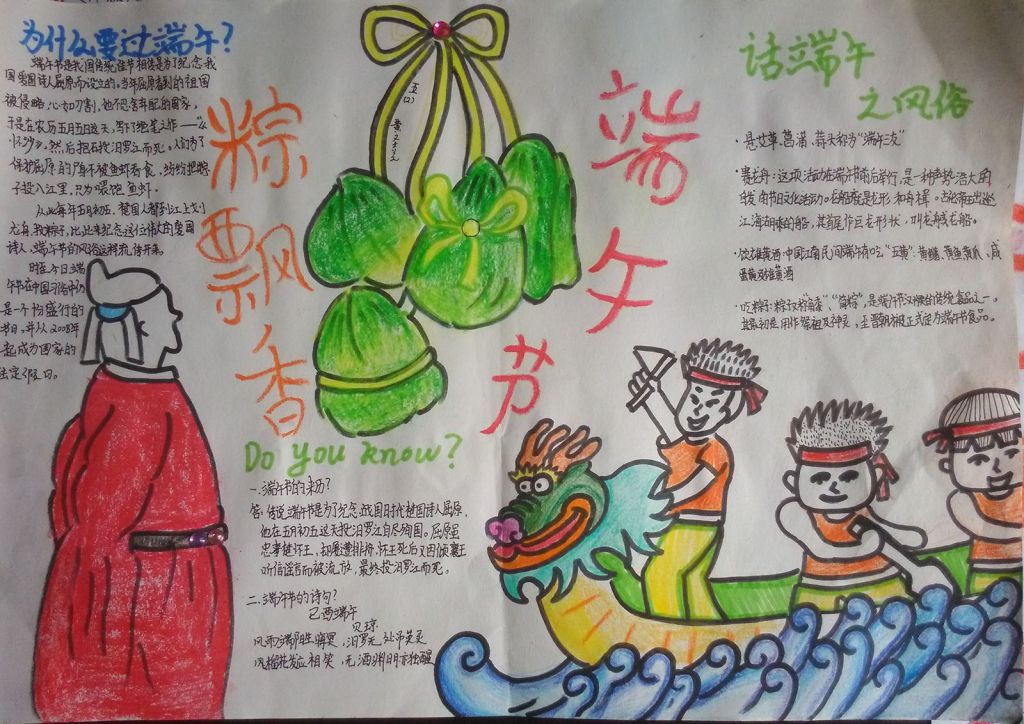 为什么要过端午?
端午节是我国传统佳节相传是为了纪念我
国爱国诗人屈原而设立的。当年屈原看到的祖国
被侵略,心如刀割,他不忍舍弃自己的国家,
于是在农历五月五日这天,写下了绝笔之作——“
怀沙》,然后抱石投汨罗江而死。人们为了
保护屈原的身体不被鱼虾吞食,纷纷把粽
子投入江里,只为喂饱鱼虾。
从此每年五月初五,楚国人都到江上划
龙舟,投粽子,以此来纪念这位伟大的爱国
诗人,端午节的风俗这样流传开来。
时至今日端
午节在中国习俗中仍
是一个份盛行的
节日,并从2008年
起成为国家的
法定假日。
粽飘香
五(2)
端午节
话端午
之风俗
·是艾草、菖蒲、蒜头称为“端午三友”
·赛龙舟:这项活动在端午节前后举行,是一种声势浩大的
江海湖泊的船,其首尾作巨龙形状,叫龙舟或龙船。
饮雄黄酒:中国江南民间端午有吃“五黄”:黄鳝、黄鱼、黄瓜、咸
蛋黄及雄黄酒
Do you know?
一.端午节的来历?
答:传说端午节是为了纪念战国时代楚国诗人屈原,
他在五月初五这天投汨罗江自尽殉国。屈原虽
忠事楚怀王,却屡遭排挤,怀王死后又因倾襄王
听信谣言而被流放,最终投汨罗江而死。
二.端午节的诗句?
己酉端午
贝琼
风雨端阳生晦冥,汨罗无处吊英灵
榴花发应相笑,无酒渊明亦独醒